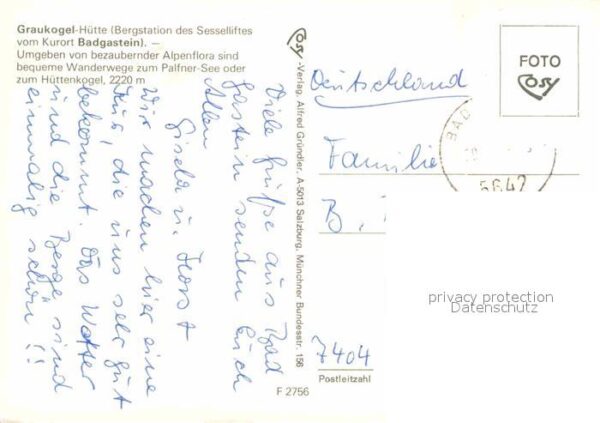 Graukogel-Hütte (Bergstation des Sesselliftes
vom Kurort Badgastein). —
Umgeben von bezaubernder Alpenflora sind
bequeme Wanderwege zum Palfner-See oder
zum Hüttenkogel, 2220 m
Viele Grüße aus Bad
Gastein senden Euch
Allen
Gisela u. Horst
Wir machen hier eine
Kur, die uns sehr gut
bekommt. Das Wetter
und die Berge sind
einmalig schön!!
Cosy -Verlag, Alfred Gründler, A-5013 Salzburg, Münchner Bundesstr. 156
FOTO
Cosy
Deutschland
BAD
5642
Familie
B.
privacy protection
Datenschutz
7404
Postleitzahl
F 2756